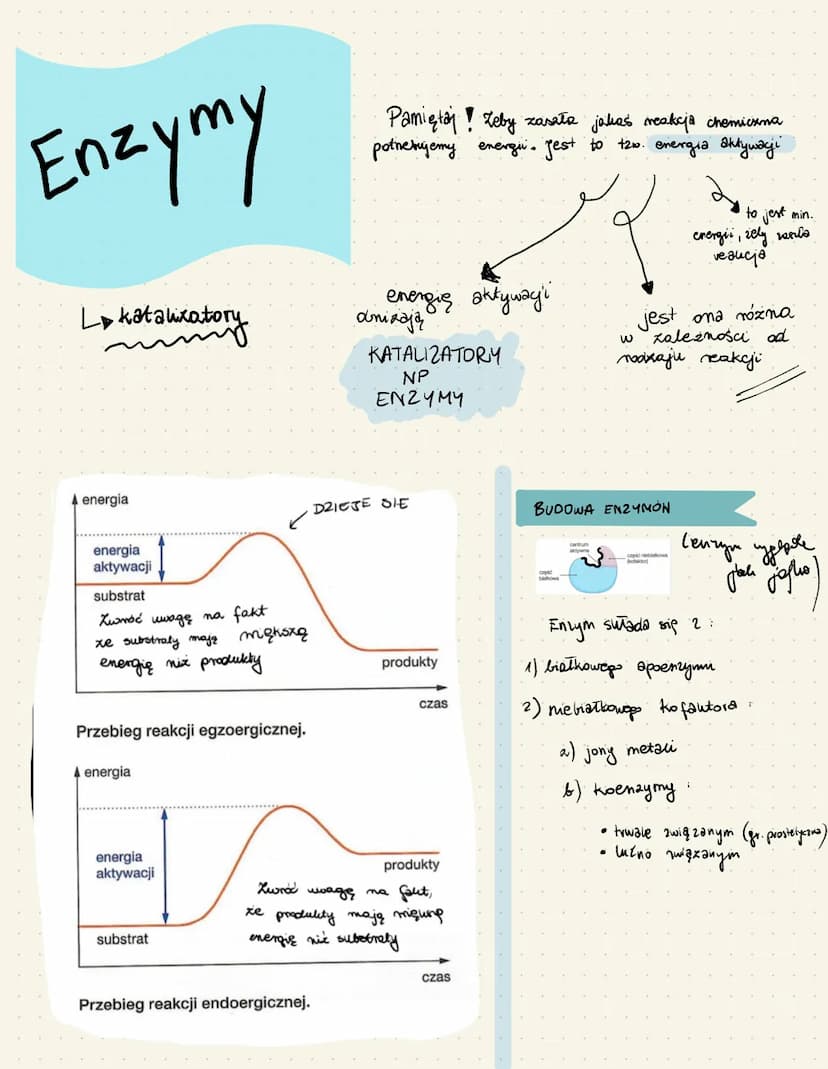 Enzymy
↳ katalizatory
Pamiętaj! Żeby zaszła jakaś reakcja chemiczna
potrzebujemy energii. Jest to tzw. energia aktywacji
to jest min.
energii, żeby zaszła
reakcja
energię aktywacji
obniżają
KATALIZATORY
NP
ENZYMY
jest ona różna
w zależności od
rodzaju reakcji
energia
DZIEJE SIE
energia
aktywacji
substrat
Zwróć uwagę na fakt
że substraty mają większą
energię niż produkty
produkty
czas
Przebieg reakcji egzoergicznej.
energia
energia
aktywacji
produkty
Zwróć uwagę na fakt,
że produkty mają większą
energię niż substraty
substrat
czas
Przebieg reakcji endoergicznej.
BUDOWA ENZYMÓW
centrum
aktywne
część niebiałkowa
(kofaktor)
część
białkowa
(enzym wygląda
jak jajko)
Enzym składa się z:
1) białkowego apoenzymu
2) niebiałkowego kofaktora:
a) jony metali
b) koenzymy:
• trwale związanym (gr. prostetyczna)
• luźno związanym